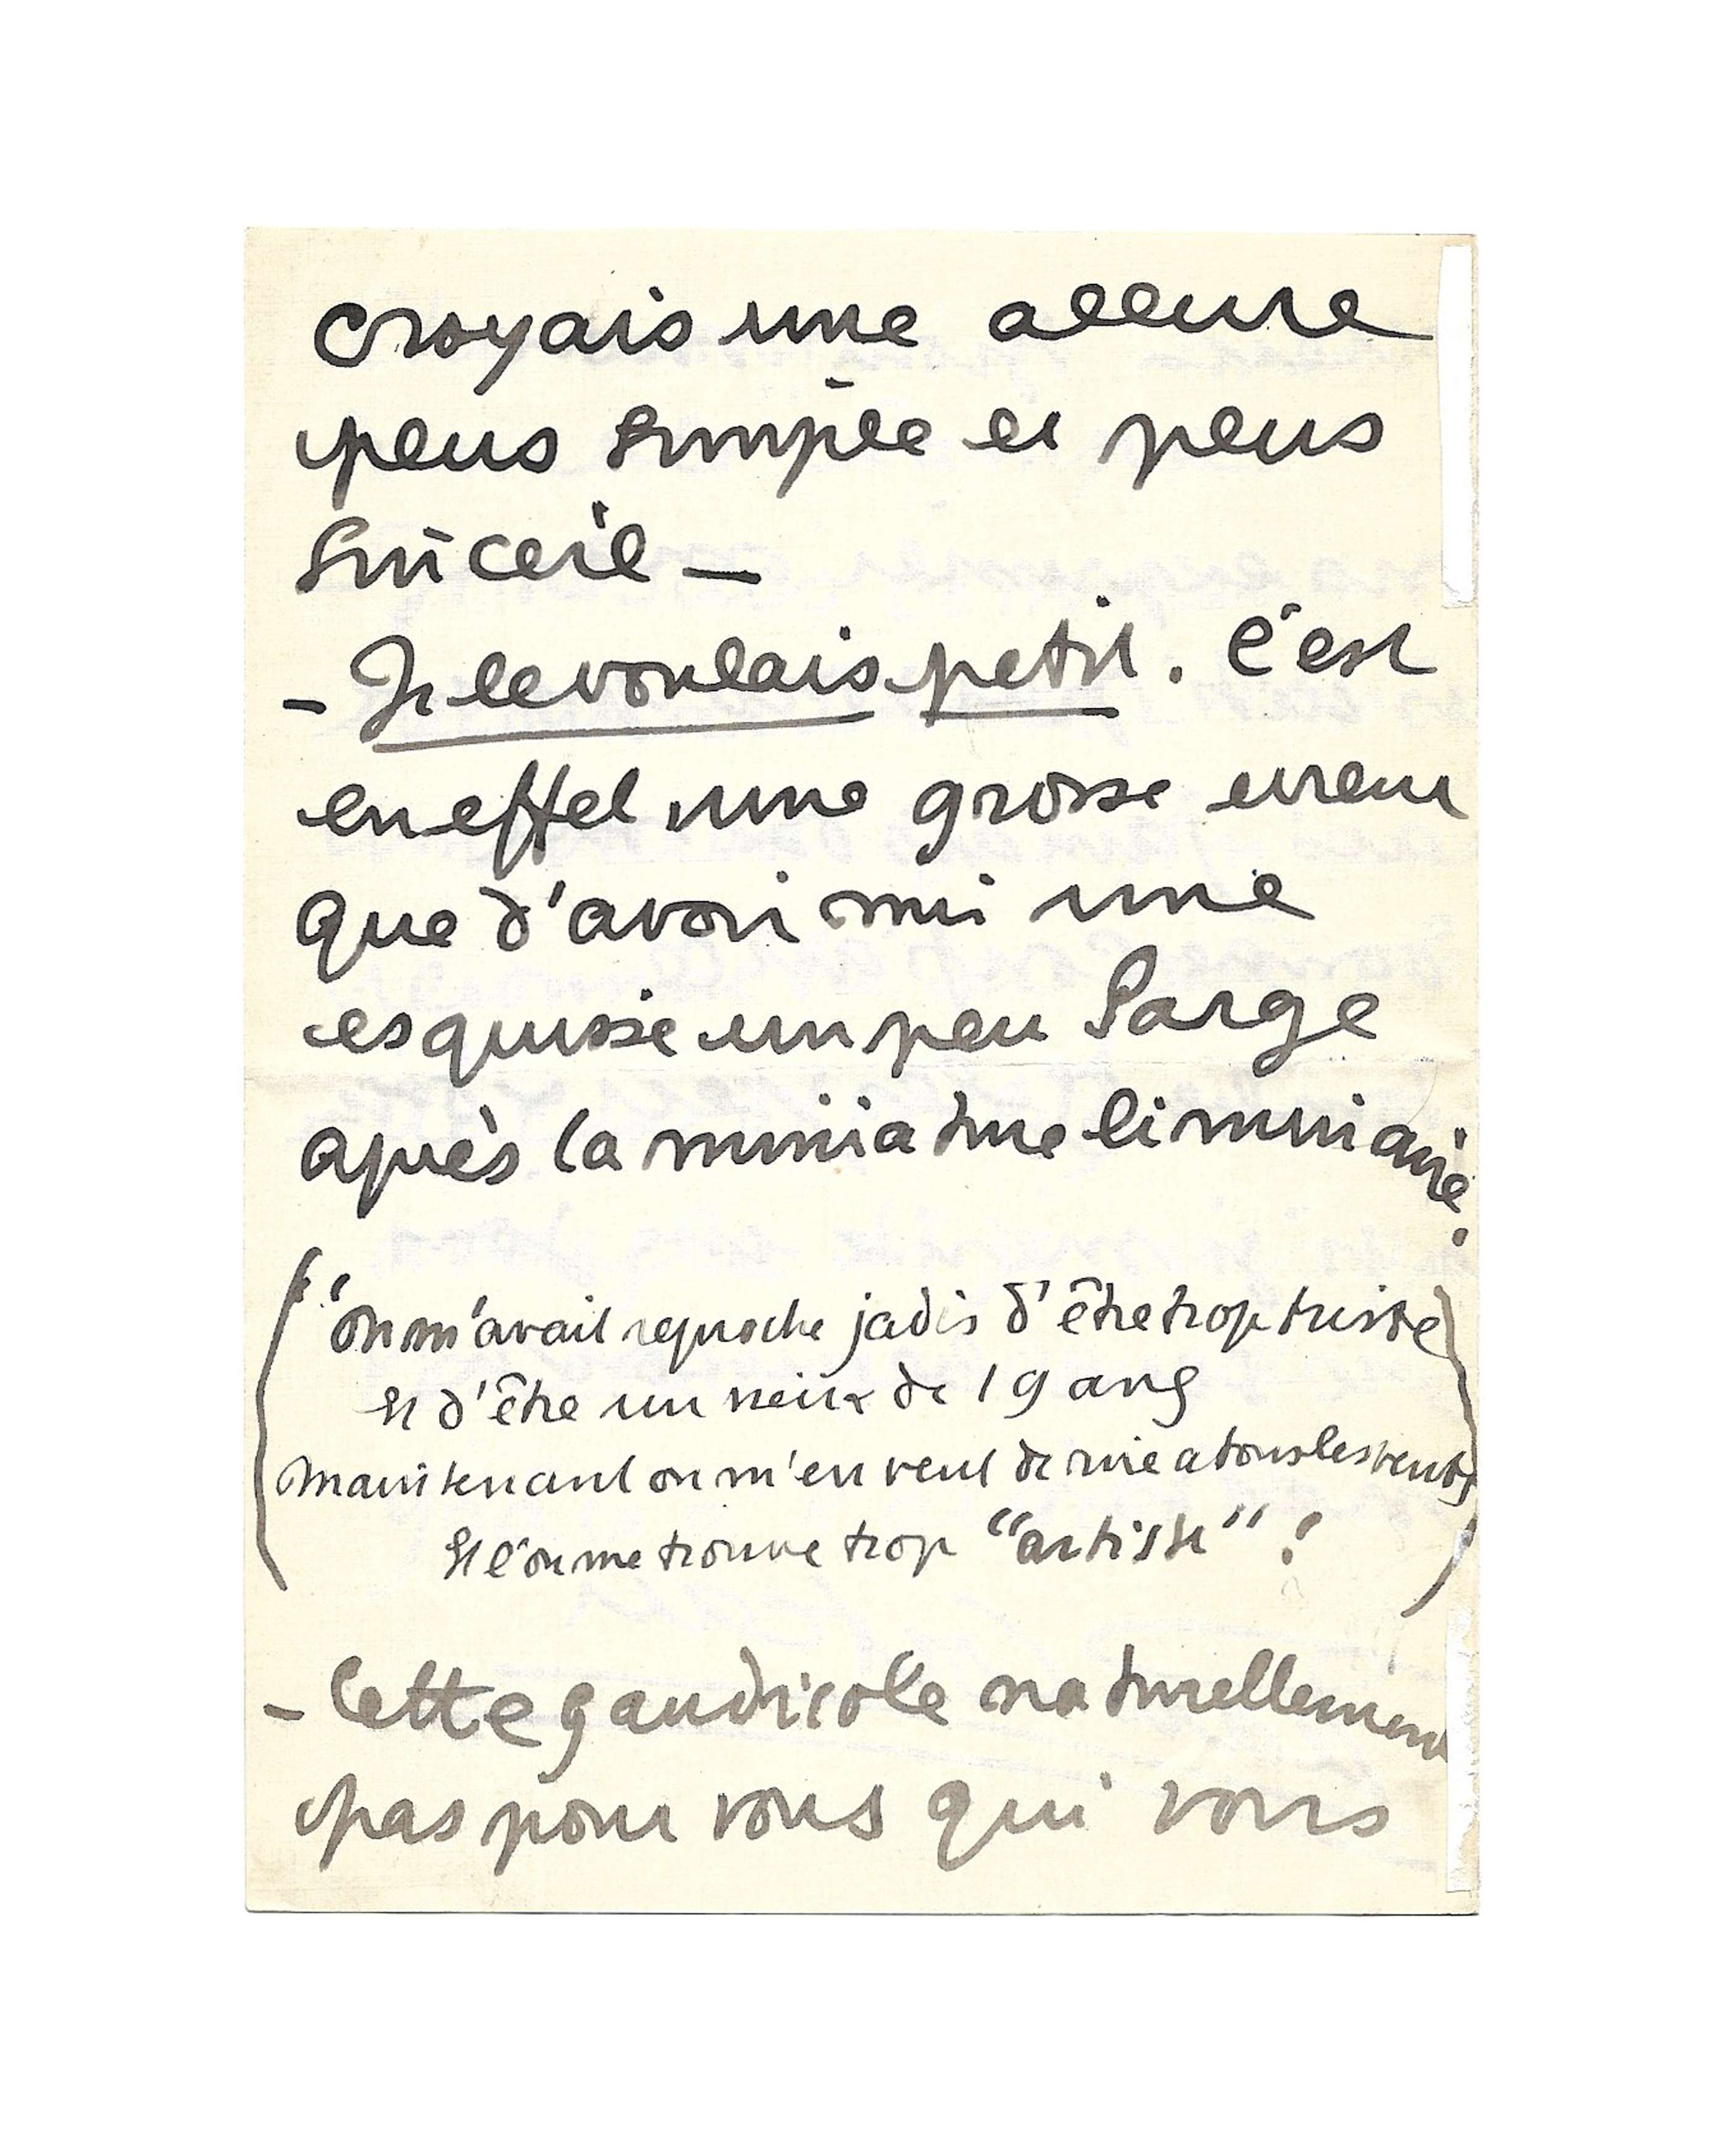 croyais une allure
plus simple et plus
sincère —
- Je le voulais petit. C'est
en effet une grosse erreur
que d'avoir mis une
esquisse un peu large
après la miniature liminaire.
(On m'avait reproché jadis d'être trop triste
et d'être un vieux de 19 ans
Maintenant on m'en veut de rire à tous les vents
et l'on me trouve trop "artiste" !)
- Cette gaudriole naturellement
pas pour vous qui vous